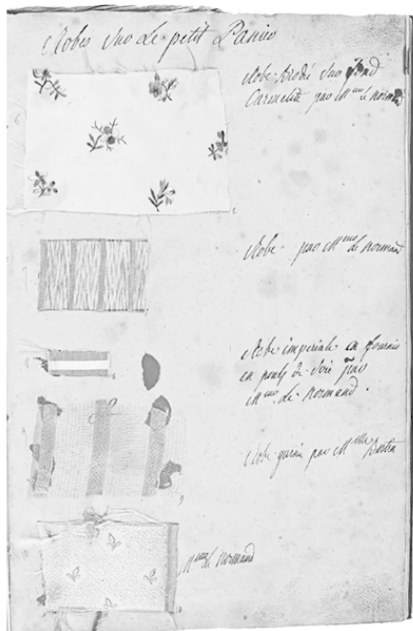 Robes Sur Le petit Panier
Robe Brodé Sur fond
Carmelite par Mme le normand
Robe par Mme le normand
Robe imperiale en fournie
en pouls de Soie par
Mme le Normand.
Robe garnie par Mlle Bertin
Mme le normand